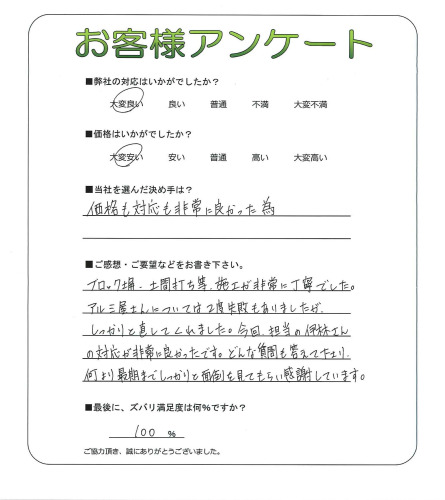 お客様アンケート
■弊社の対応はいかがでしたか？
大変良い 良い 普通 不満 大変不満
■価格はいかがでしたか？
大変安い 安い 普通 高い 大変高い
■当社を選んだ決め手は？
価格も対応も非常に良かった為
■ご感想・ご要望などをお書き下さい。
ブロック塀、土間打ち等、施工が非常に丁寧でした。
アルミ屋さんについては2度失敗もありましたが、
しっかりと直してくれました。今回、担当の伊林さん
の対応が非常に良かったです。どんな質問も答えて下さり、
何より最期までしっかりと面倒を見てもらい感謝しています。
■最後に、ズバリ満足度は何%ですか？
100 %
ご協力頂き、誠にありがとうございました。